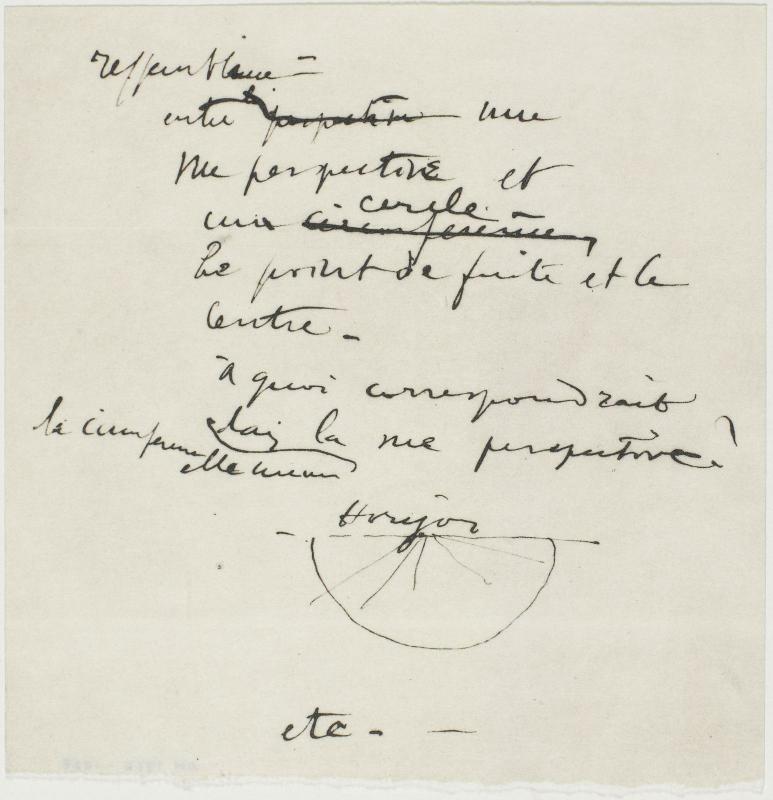 ressemblance –
entre la perspective une
vue perspective et
une circonférence, cercle
Le point de fuite et le
Centre –
à quoi correspondrait
la circonférence elle même dans la vue perspective?
Horizon
etc. –